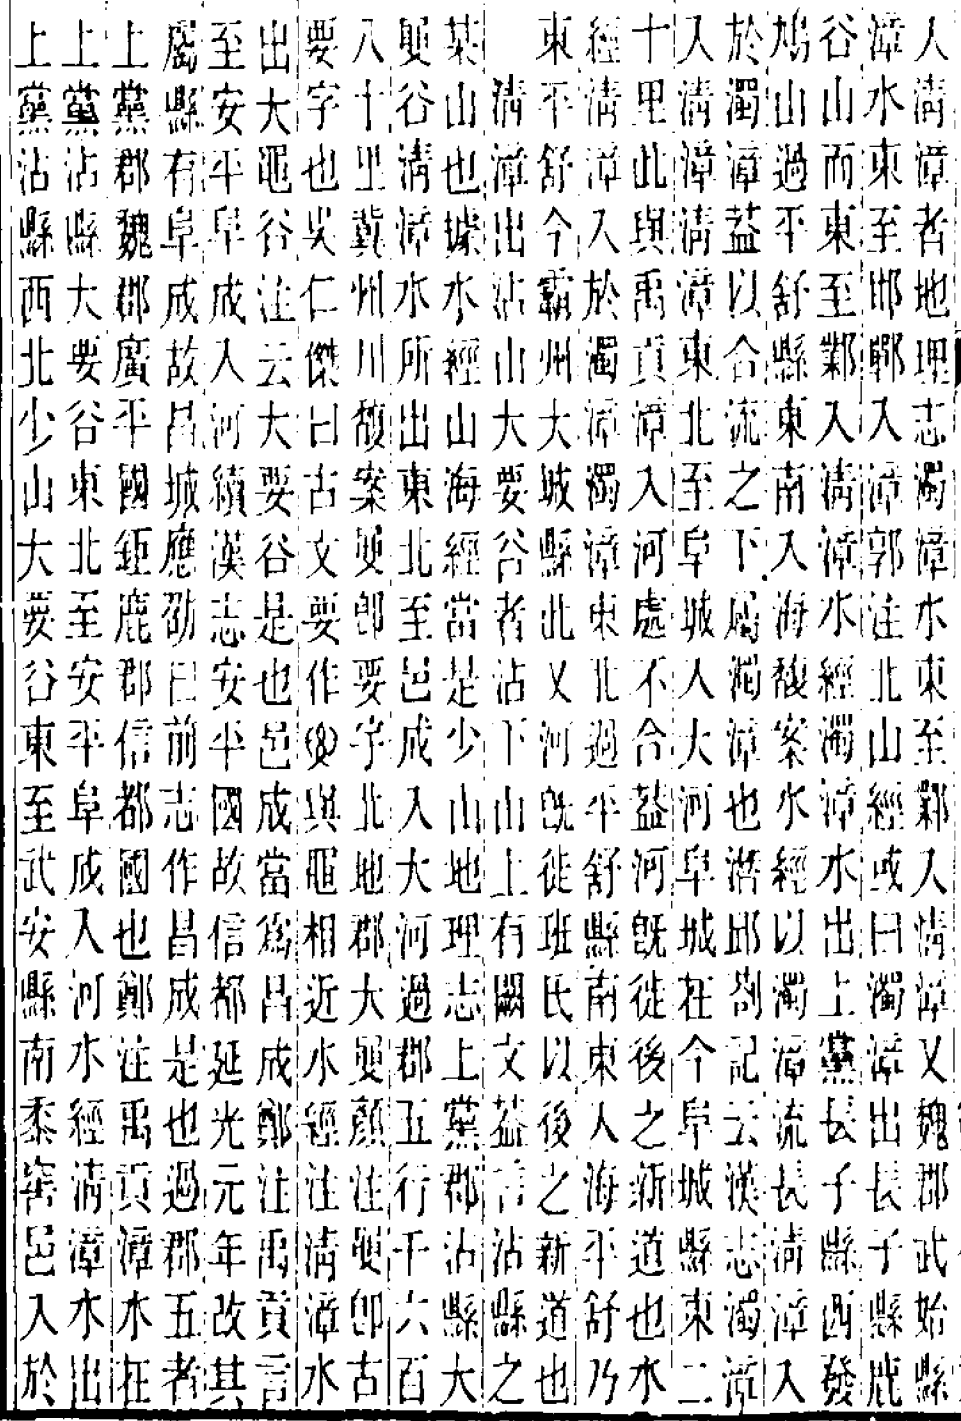 入淸漳者地理志濁漳水東至鄴入淸漳又魏郡武始縣
漳水東至邯鄲入漳郭注北山經或曰濁漳出長子縣鹿
谷山而東至鄴入淸漳水經濁漳水出上黨長子縣西發
鳩山過平舒縣東南入海馥案水經以濁漳流長淸漳入
於濁漳蓋以合流之下屬濁漳也潛邱劄記云漢志濁漳
入淸漳淸漳東北至阜城入大河阜城在今阜城縣東二
十里此與禹貢漳入河處不合蓋河旣徙後之新道也水
經淸漳入於濁漳濁漳東北過平舒縣南東入海平舒乃
東平舒今霸州大城縣此又河旣徙班氏以後之新道也
淸漳出沾山大要谷者沾下山上有闕文蓋言沾縣之
某山也據水經山海經當是少山地理志上黨郡沾縣大
谷淸漳水所出東北至邑成入大河過郡五行千六百
八十里冀州川馥案卽要字北地郡大顏注卽古
要字也吳仁傑曰古文要作與黽相近水經注淸漳水
出大黽谷注云大要谷是也邑成當爲昌成鄭注禹貢言
至安平阜成入河續漢志安平國故信都延光元年改其
屬縣有阜成故昌城應劭曰前志作昌成是也過郡五者
上黨郡魏郡廣平國鉅鹿郡信都國也鄭注禹貢漳水在
上黨沾縣大要谷東北至安平阜成入河水經淸漳水出
上黨沾縣西北少山大要谷東至武安縣南黍窖邑入於